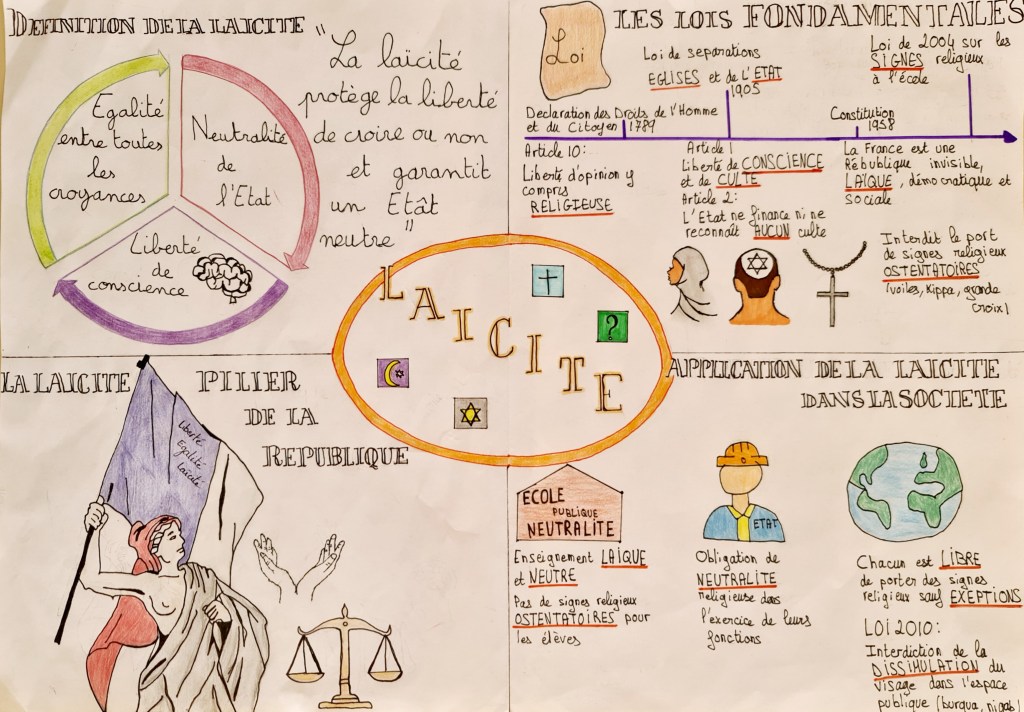 DEFINITION DE LA LAICITE
Egalité
entre toutes
les
croyances
Neutralité
de
l'Etat
Liberté
de
conscience
"La laïcité
protège la liberté
de croire ou non
et garantit
un Etât
neutre"
LES LOIS FONDAMENTALES
Loi
Loi de separations
EGLISES et de l'ETAT
1905
Loi de 2004 sur les
SIGNES religieux
à l'école
Declaration des Droits de l'Homme
et du Citoyen 1789
Constitution
1958
Article 10:
Liberté d'opinion y
compris
RELIGIEUSE
Article 1
Liberté de CONSCIENCE
et de CULTE
Article 2:
L'Etat ne finance ni ne
reconnaît AUCUN culte
La France est une
République invisible,
LAÏQUE, démocratique et
sociale
Interdit le port
de signes religieux
OSTENTATOIRES
(voiles, Kippa, grande
croix)
LAICITE
?
LA LAICITE PILIER
DE LA
REPUBLIQUE
Liberté
Egalité
Laïcité
APPLICATION DE LA LAICITE
DANS LA SOCIETE
ECOLE
PUBLIQUE
NEUTRALITE
Enseignement LAÏQUE
et NEUTRE
Pas de signes religieux
OSTENTATOIRES pour
les élèves
ETAT
Obligation de
NEUTRALITE
religieuse dans
l'exercice de leurs
fonctions
Chacun est LIBRE
de porter des signes
religieux sauf EXEPTIONS
LOI 2010:
Interdiction de la
DISSIMULATION du
visage dans l'espace
publique (burqua, niqab)